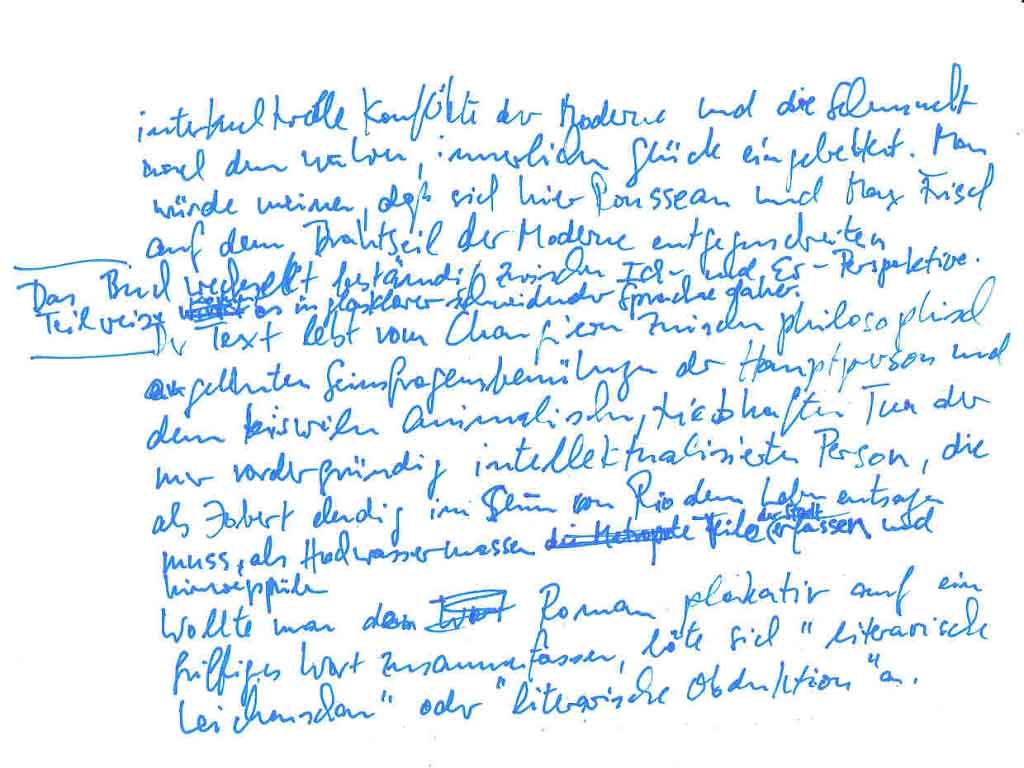 interkulturelle Konflikte der Moderne und die Sehnsucht
nach dem wahren, innerlichen Glück eingebettet. Man
würde meinen, daß sich hier Rousseau und Max Frisch
auf dem Drahtseil der Moderne entgegenschreiten
Das Buch wechselt beständig zwischen Ich- und Er-Perspektive.
Teilweise es in glasklarer schneidender Sprache daher.
Der Text lebt vom Changieren zwischen philosophisch
angelehnten Seinsfragensbemühungen der Hauptperson und
dem bisweilen animalischen, triebhaften Tun der
nur vordergründig intellektualisierten Person, die
als Jobert elendig im Slum von Rio dem Leben entsagen
muss, als Hochwassermassen die Metropole Teile der Stadt erfassen und
hinwegspülen
Wollte man den Wort Roman plakativ auf ein
griffiges Wort zusammenfassen, böte sich "literarische
Leichenschau" oder "literarische Obduktion" an.